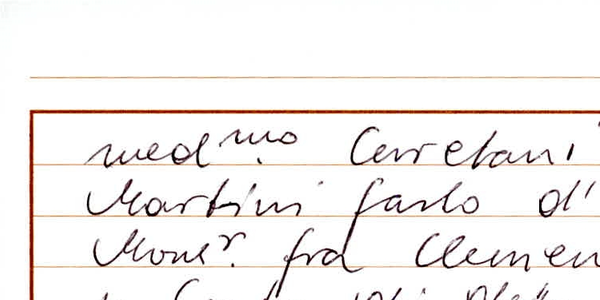 med.mo Cerretani
Martini farlo d'
Mons.r fra Clemen